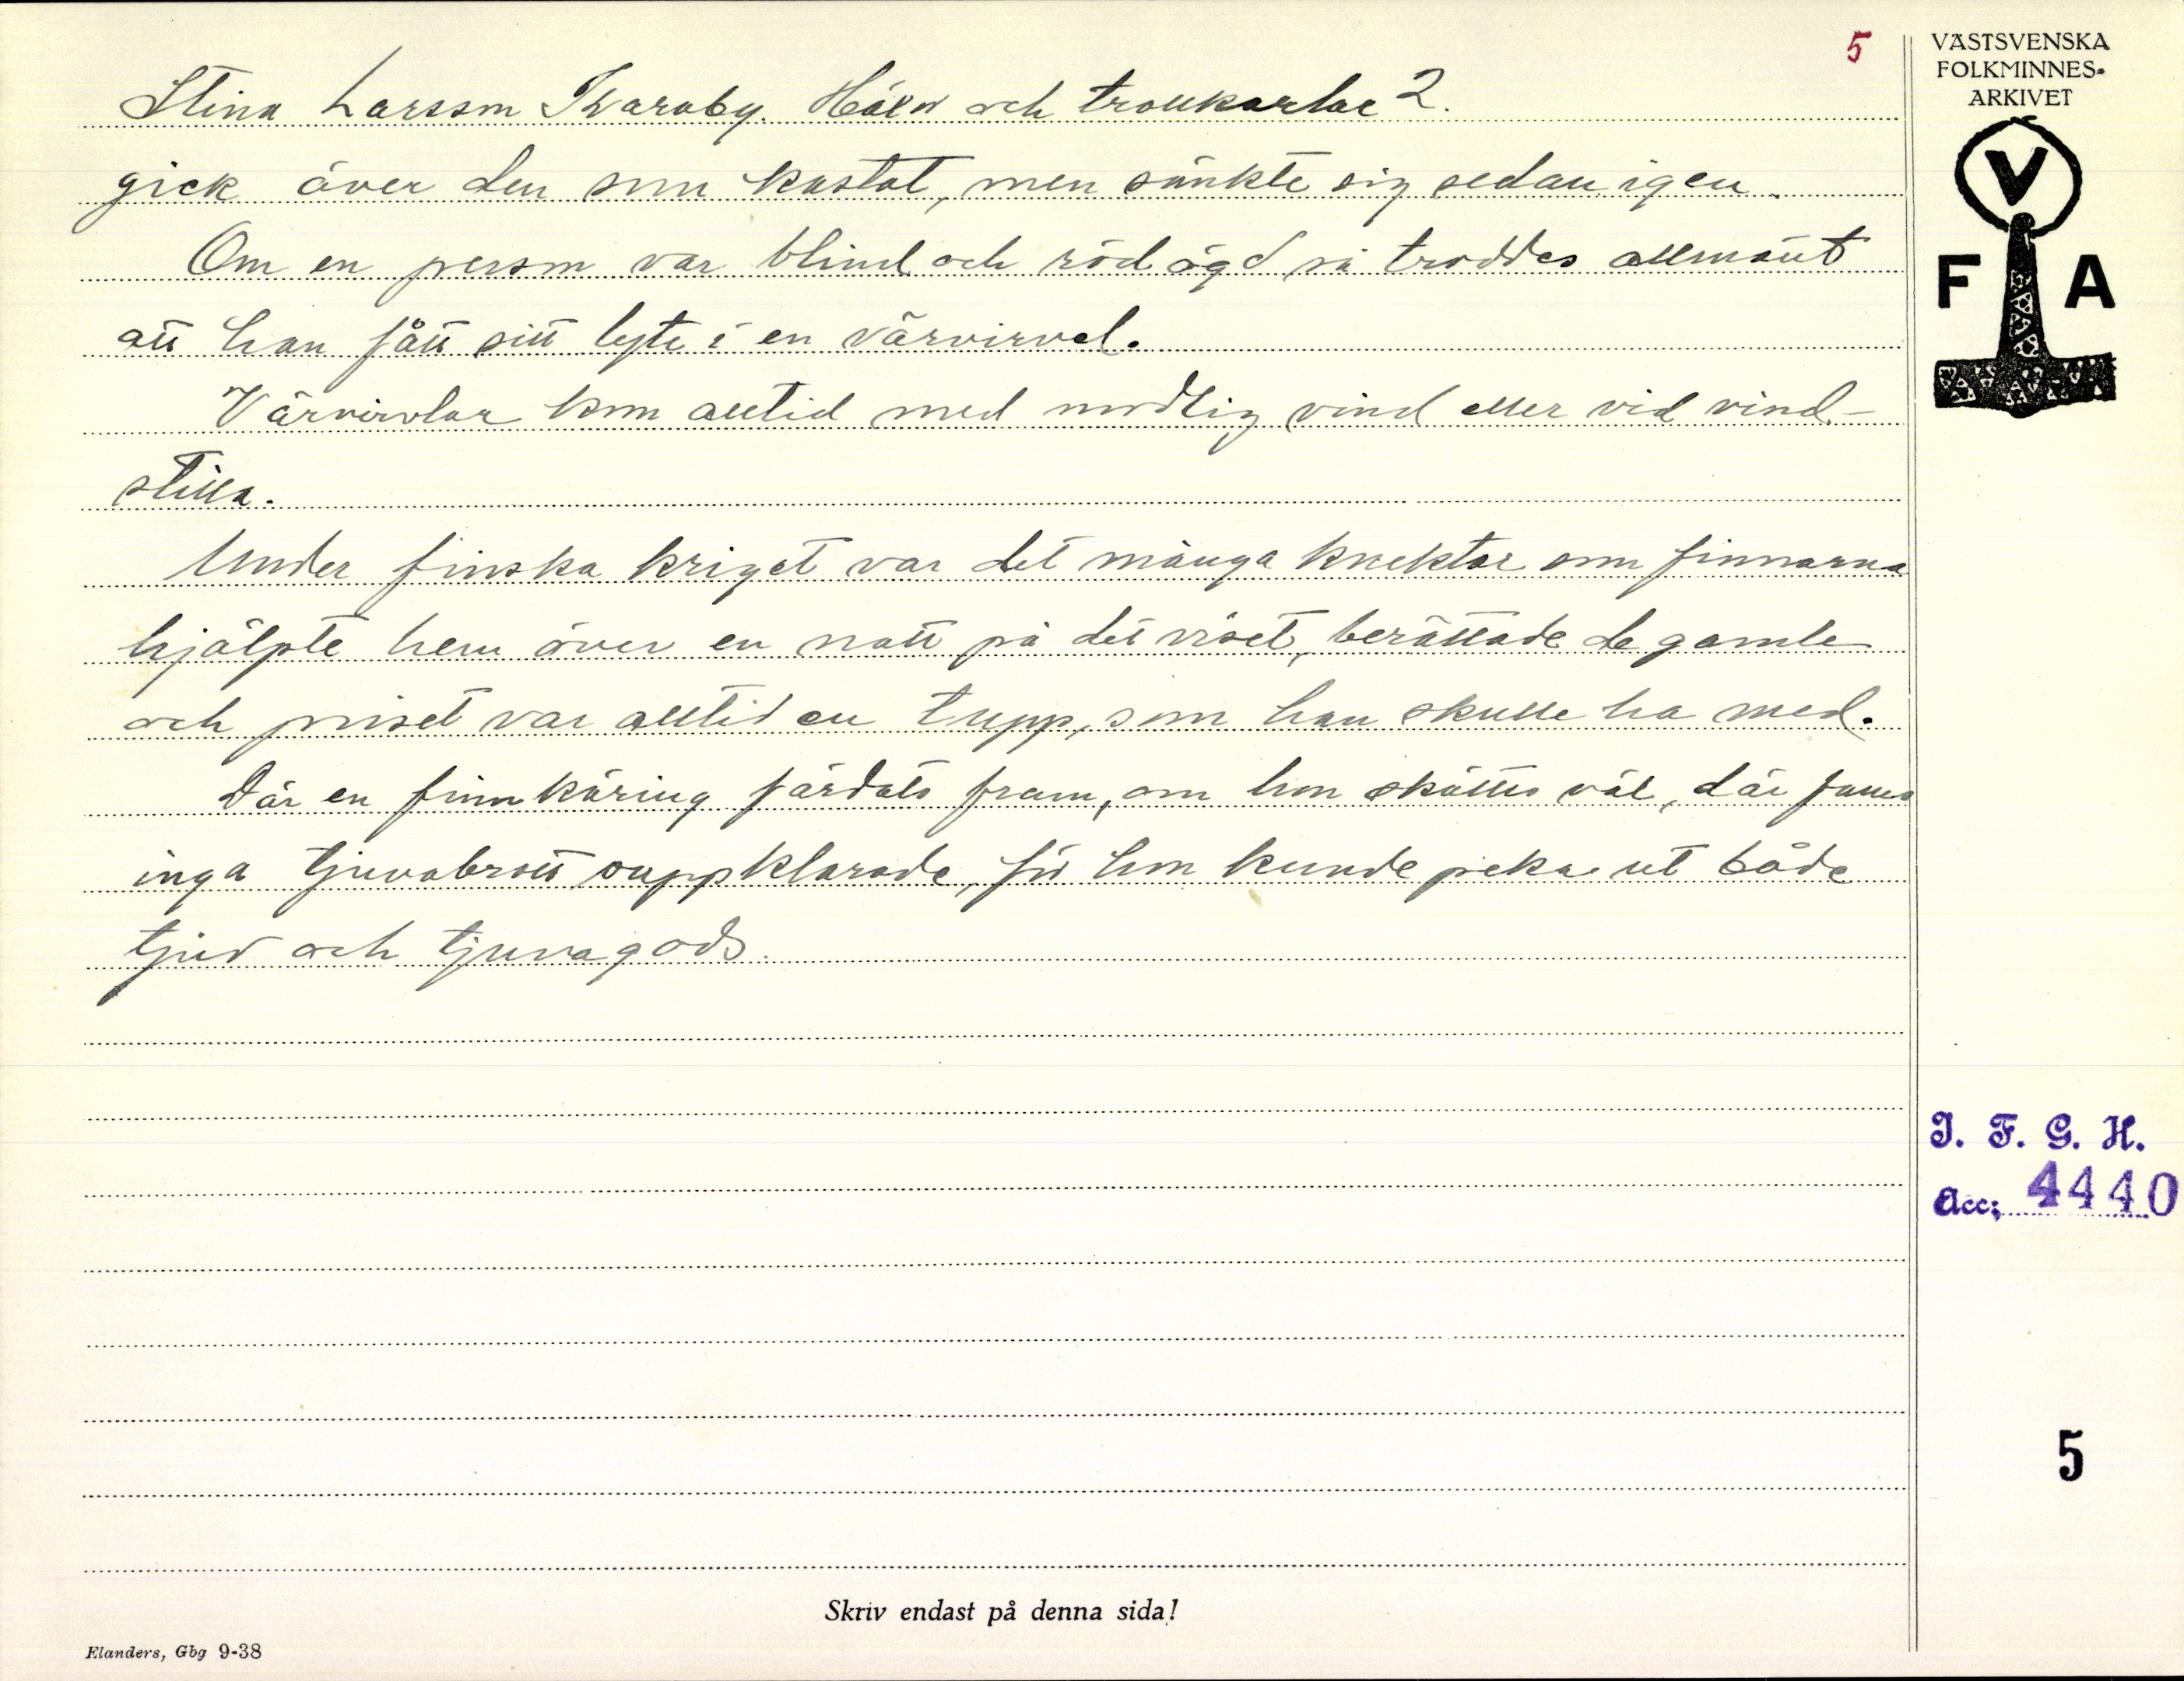 5
VÄSTSVENSKA
FOLKMINNES-
ARKIVET
V
F A
Stina Larsson Kvaraby. Häxor och trollkarlar 2.
gick över den som kastat, men sänkte sig sedan igen.
Om en person var blind och rödögd så troddes allmänt
att han fått sitt lyte i en värvirvel.
Värvirvlar kom alltid med nordlig vind eller vid vind-
stilla.
Under finska kriget var det många knektar som finnarna
hjälpte hem över en natt på det viset, berättade de gamle
och priset var alltid en tupp, som han skulle ha med.
Där en finnkäring färdats fram, om hon sköttes väl, där fanns
inga tjuvabrott ouppklarade, för hon kunde peka ut både
tjuv och tjuvagods.
I. F. G. H.
Acc: 4440
5
Skriv endast på denna sida!
Elanders, Gbg 9-38